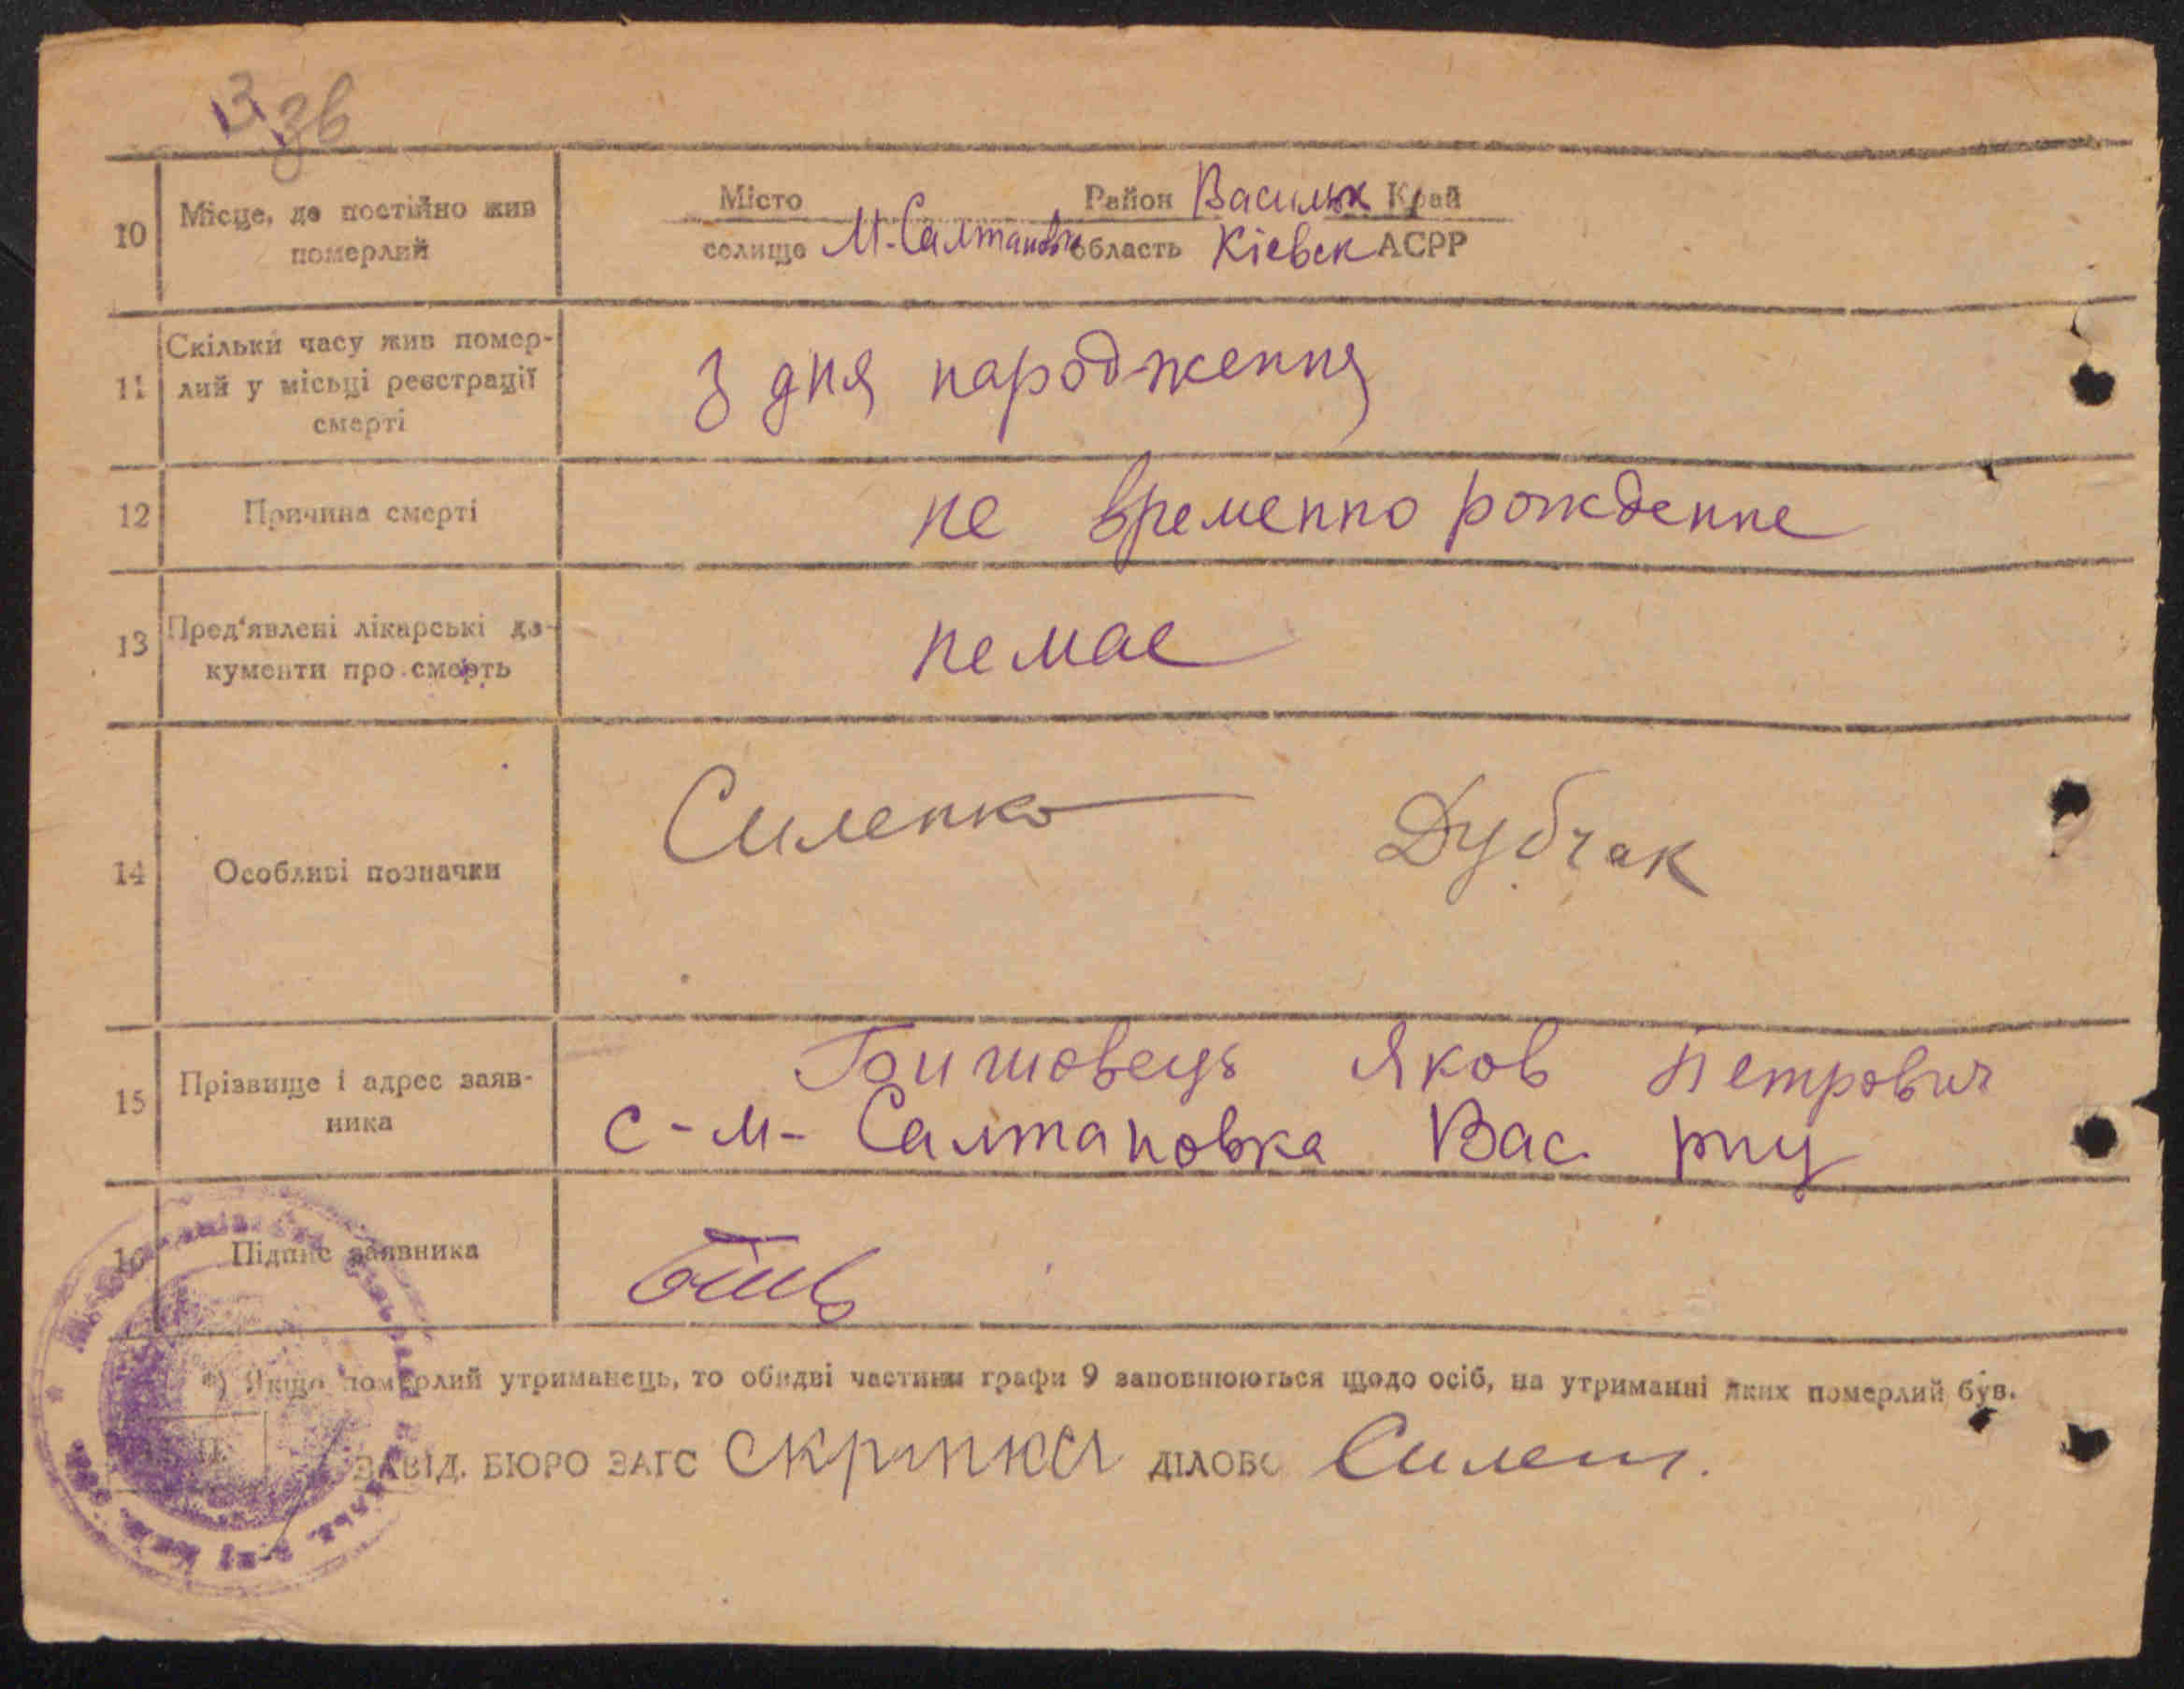 10
Місце, де постійно жив
померлий
Місто Район Васильк Край
селище М-Салтановк область Кіевск АСРР
11
Скільки часу жив помер-
лий у місьці реєстрації
смерті
З дня народження
12
Причина смерті
не временно рождение
13
Пред'явлені лікарські до-
кументи про смерть
немае
14
Особливі позначки
Силенко Дубчак
15
Прізвище і адрес заяв-
ника
Яков Петрович
с-м- Салтановка Вас. рну
16
Підпис заявника
*) Якщо померлий утриманець, то обидві частини графи 9 заповнюються щодо осіб, на утриманні яких померлий був.
ЗАВІД. БЮРО ЗАГС Скрипка ДІЛОВО